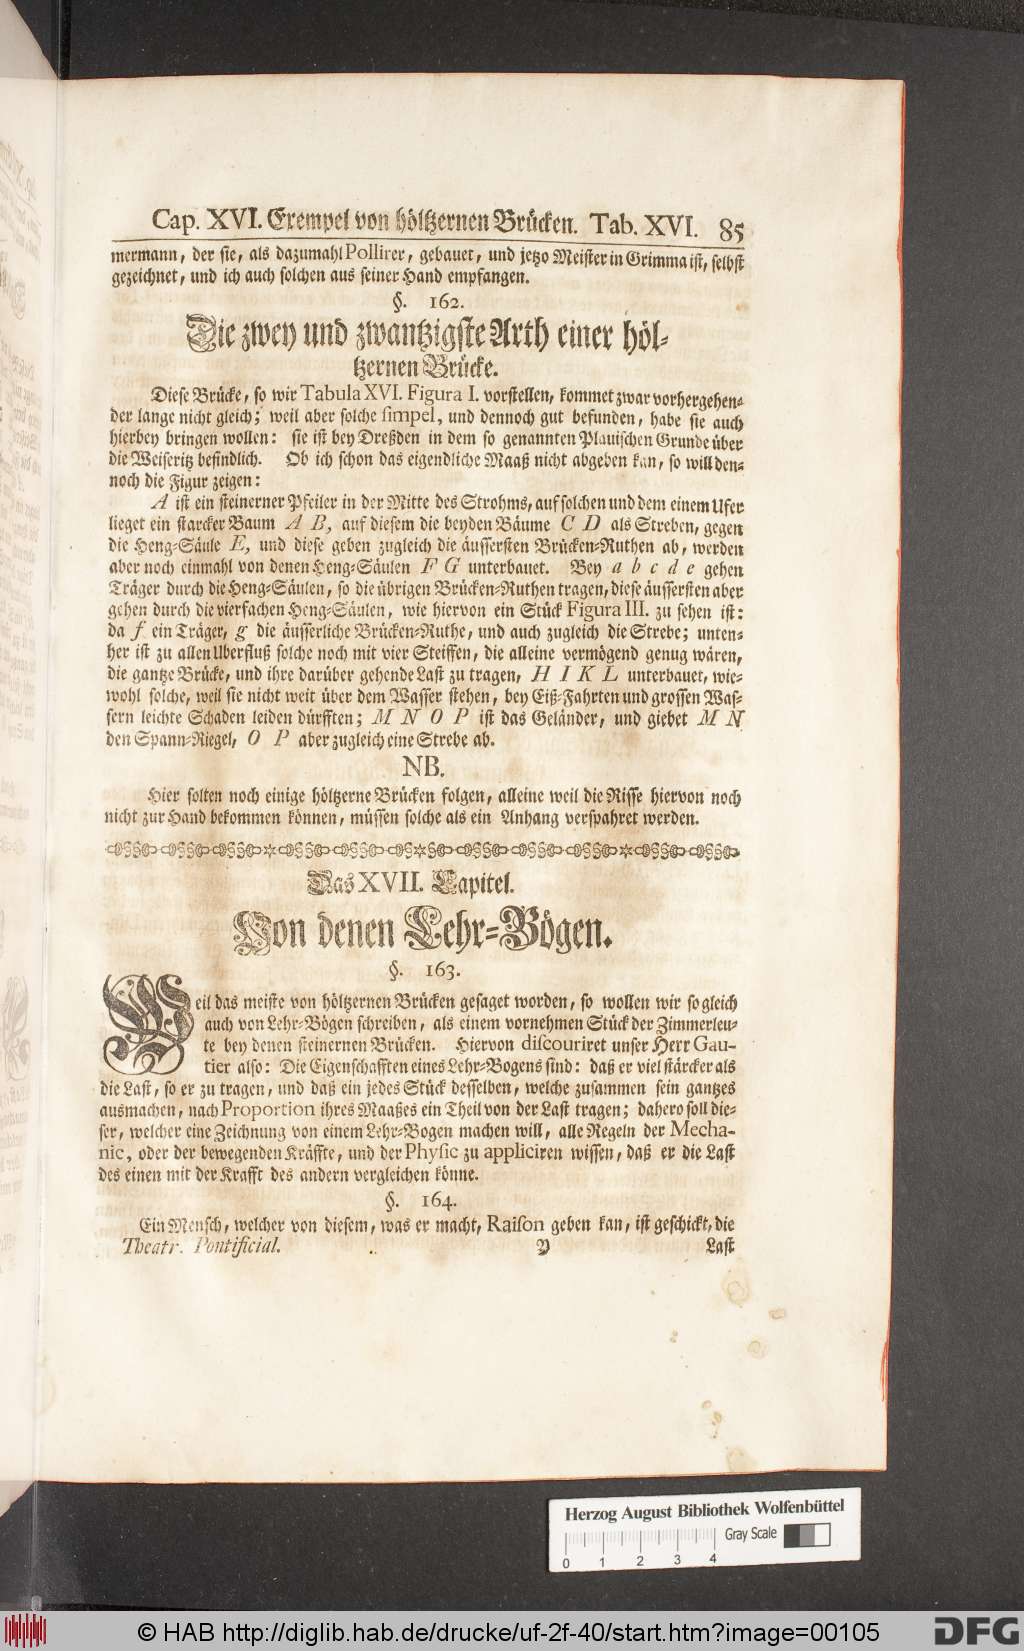 Cap. XVI. Exempel von höltzernen Brücken. Tab. XVI. 85
mermann, der sie, als dazumahl Pollirer, gebauet, und jetzo Meister in Grimma ist, selbst
gezeichnet, und ich auch solchen aus seiner Hand empfangen.
§. 162.
Die zwey und zwantzigste Arth einer höl-
tzernen Brücke.
Diese Brücke, so wir Tabula XVI. Figura I. vorstellen, kommet zwar vorhergehen-
der lange nicht gleich; weil aber solche simpel, und dennoch gut befunden, habe sie auch
hierbey bringen wollen: sie ist bey Dreßden in dem so genannten Plauischen Grunde über
die Weiseritz befindlich. Ob ich schon das eigendliche Maaß nicht abgeben kan, so will den-
noch die Figur zeigen:
A ist ein steinerner Pfeiler in der Mitte des Strohms, auf solchen und dem einem Ufer
lieget ein starcker Baum A B, auf diesem die beyden Bäume C D als Streben, gegen
die Heng-Säule E, und diese geben zugleich die äussersten Brücken-Ruthen ab, werden
aber noch einmahl von denen Heng-Säulen F G unterbauet. Bey a b c d e gehen
Träger durch die Heng-Säulen, so die übrigen Brücken-Ruthen tragen, diese äussersten aber
gehen durch die vierfachen Heng-Säulen, wie hiervon ein Stück Figura III. zu sehen ist:
da f ein Träger, g die äusserliche Brücken-Ruthe, und auch zugleich die Strebe; unten-
her ist zu allen Uberfluß solche noch mit vier Steiffen, die alleine vermögend genug wären,
die gantze Brücke, und ihre darüber gehende Last zu tragen, H I K L unterbauet, wie-
wohl solche, weil sie nicht weit über dem Wasser stehen, bey Eiß-Fahrten und grossen Was-
sern leichte Schaden leiden dürfften; M N O P ist das Geländer, und giebet M N
den Spann-Riegel, O P aber zugleich eine Strebe ab.
NB.
Hier solten noch einige höltzerne Brücken folgen, alleine weil die Risse hiervon noch
nicht zur Hand bekommen können, müssen solche als ein Anhang verspahret werden.
Das XVII. Capitel.
Von denen Lehr-Bögen.
§. 163.
Weil das meiste von höltzernen Brücken gesaget worden, so wollen wir so gleich
auch von Lehr-Bögen schreiben, als einem vornehmen Stück der Zimmerleu-
te bey denen steinernen Brücken. Hiervon discouriret unser Herr Gau-
tier also: Die Eigenschafften eines Lehr-Bogens sind: daß er viel stärcker als
die Last, so er zu tragen, und daß ein jedes Stück desselben, welche zusammen sein gantzes
ausmachen, nach Proportion ihres Maaßes ein Theil von der Last tragen; dahero soll die-
ser, welcher eine Zeichnung von einem Lehr-Bogen machen will, alle Regeln der Mecha-
nic, oder der bewegenden Kräffte, und der Physic zu appliciren wissen, daß er die Last
des einen mit der Krafft des andern vergleichen könne.
§. 164.
Ein Mensch, welcher von diesem, was er macht, Raison geben kan, ist geschickt, die
Theatr. Pontificial. Y Last
Herzog August Bibliothek Wolfenbüttel
Gray Scale
0 1 2 3 4
© HAB http://diglib.hab.de/drucke/uf-2f-40/start.htm?image=00105
DFG